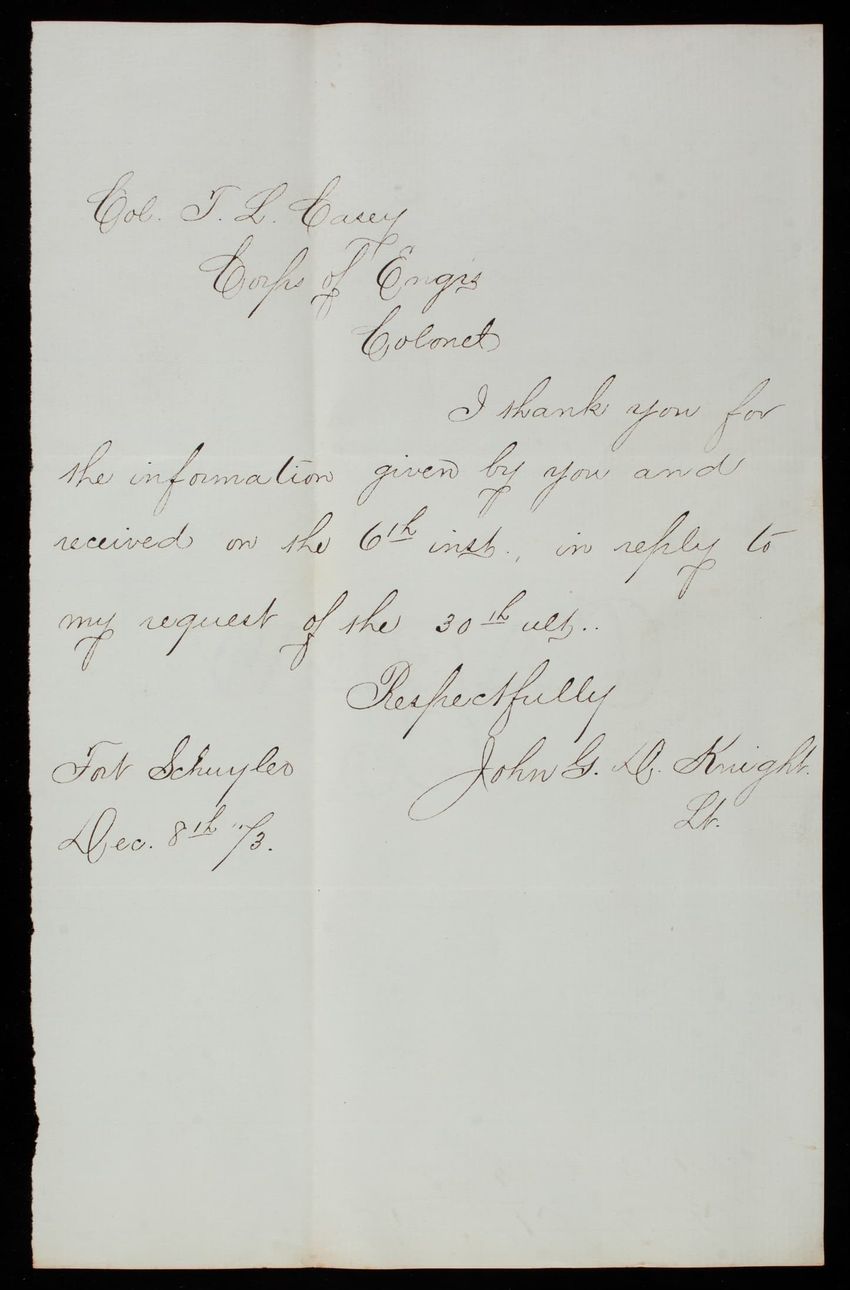 Col. T. L. Casey
Corps of Engrs
Colonel
I thank you for
the information given by you and
received on the 6th inst., in reply to
my request of the 30th ult..
Respectfully
Fort Schuyler
John G. D. Knight.
Lt.
Dec. 8th "/3.